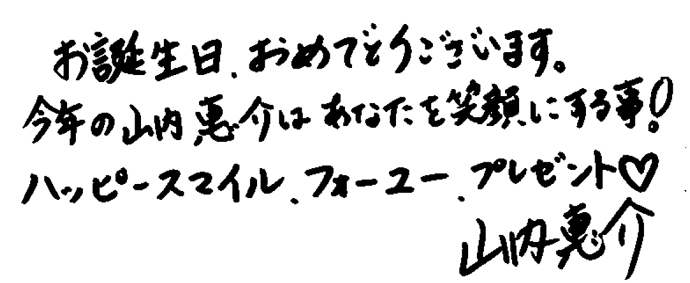 お誕生日、おめでとうございます。
今年の山内惠介はあなたを笑顔にする事!
ハッピースマイル、フォーユー、プレゼント♡
山内惠介